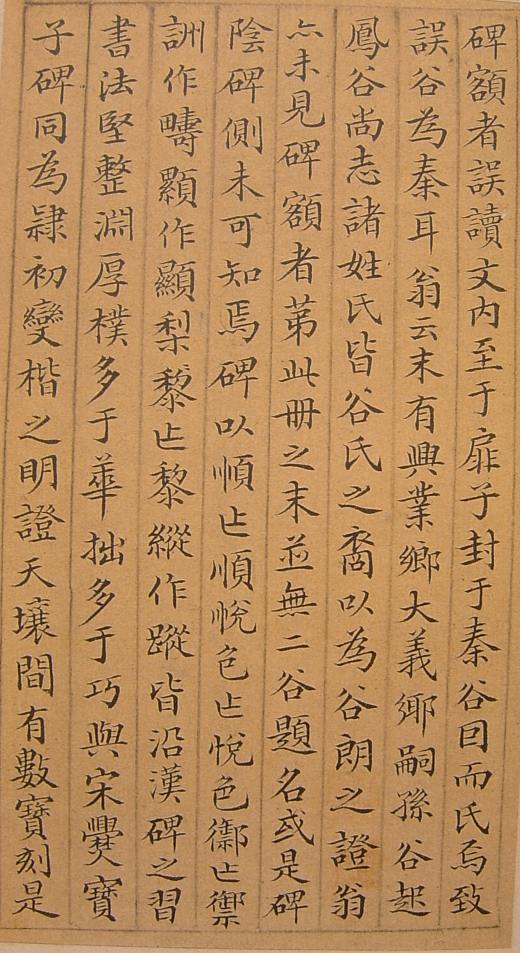 碑額者誤讀文内至于扉子封于秦谷因而氏焉致
誤谷為秦耳翁云末有興業鄉大義鄉嗣孫谷起
鳳谷尚志諸姓氏皆谷氏之裔以為谷朗之證翁
亦未見碑額者苐此册之末並無二谷題名或是碑
陰碑側未可知焉碑以愼㐌順悅色㐌悅色禦㐌禦
詶作疇顯作顯梨藜㐌黎縱作蹤皆沿漢碑之習
書法堅整淵厚樸多于華拙多于巧與宋爨寶
子碑同為隸初變楷之明證天壤間有數寶刻是